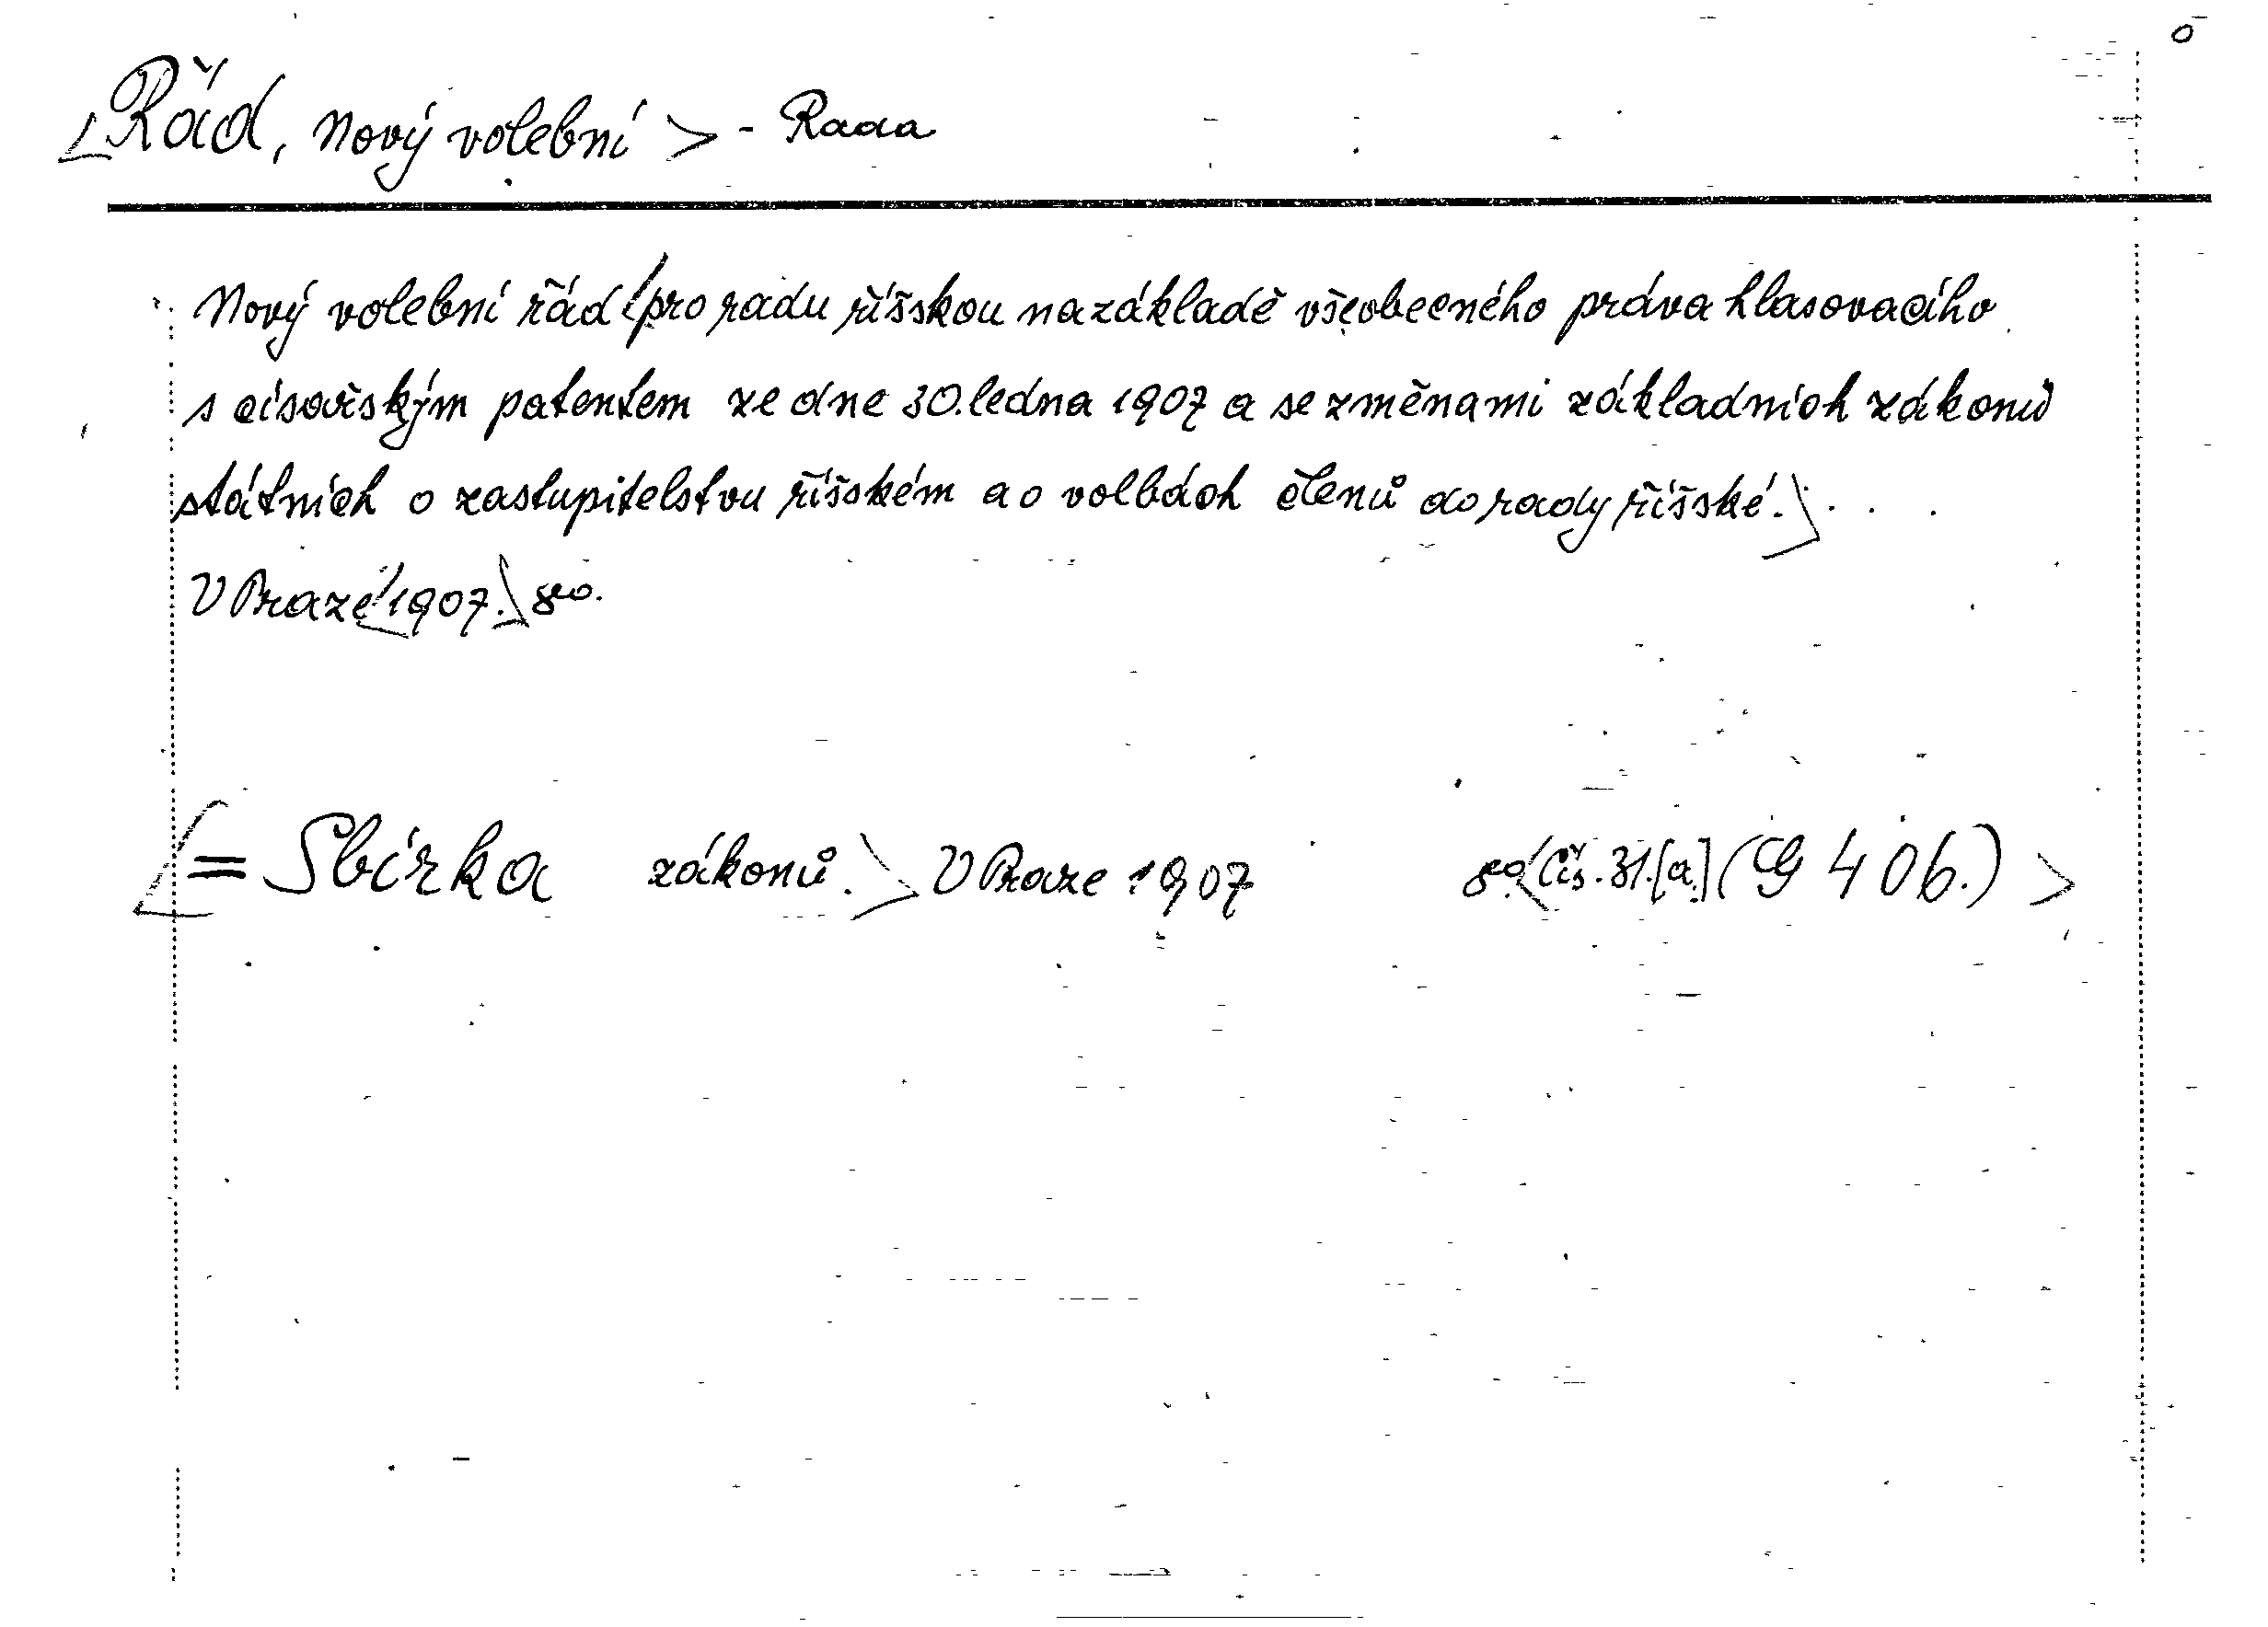 <Řád, nový volební> - Rada
Nový volební řád <pro radu říšskou na základě všeobecného práva hlasovacího
s císařským patentem ze dne 30. ledna 1907 a se změnami základních zákonů
státních o zastupitelstvu říšském a o volbách členů do rady říšské.> . . .
V Praze <1907.> 8º.
<= Sbírka zákonů.> V Praze 1907 8º. <Čís. 31.[a.] (G 406.) >